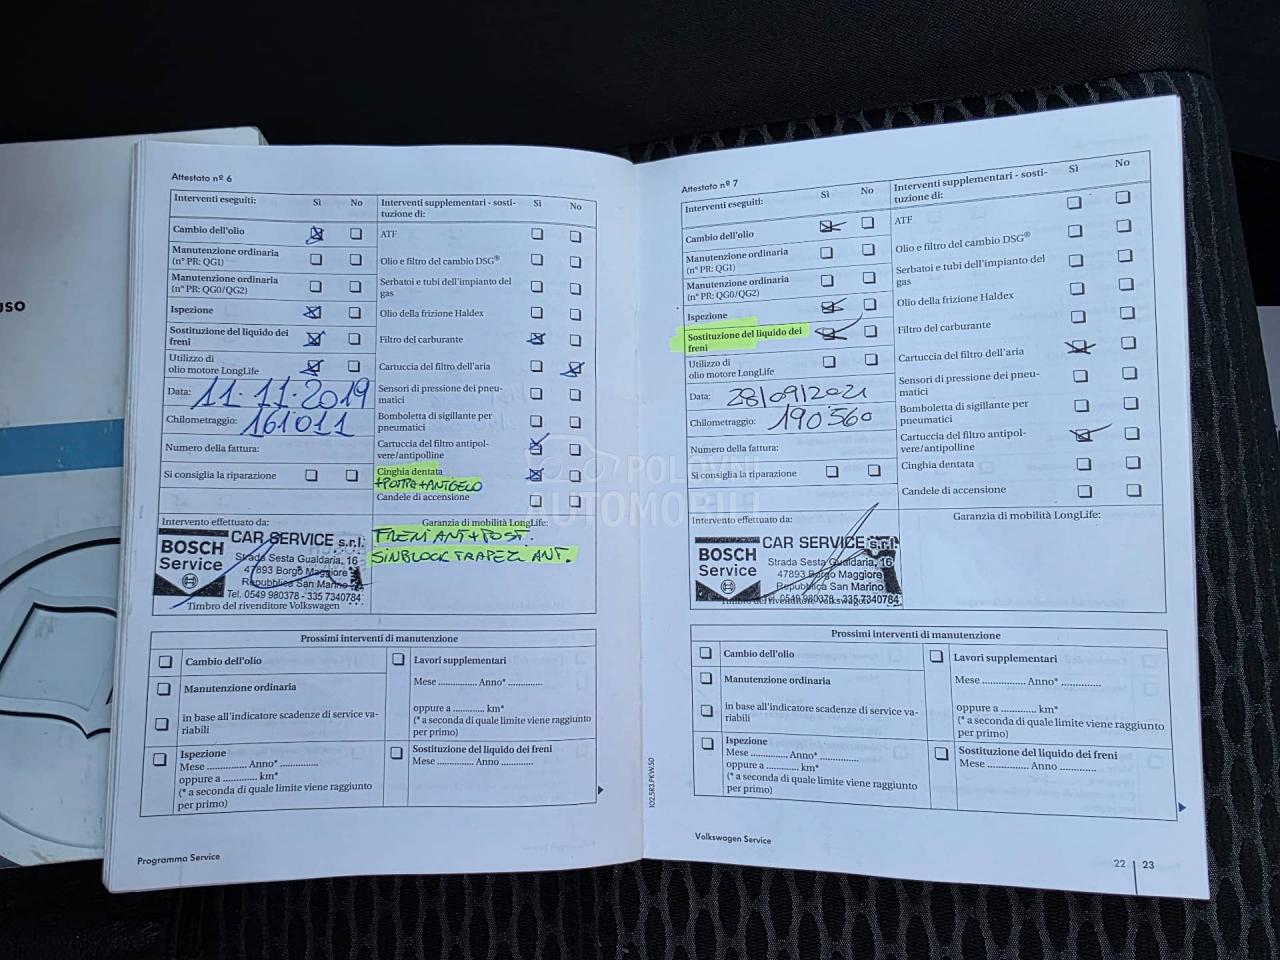 uso
Attestato nº 6
Interventi eseguiti: Sì No
Cambio dell'olio
Manutenzione ordinaria
(nº PR: QG1)
Manutenzione ordinaria
(nº PR: QG0/QG2)
Ispezione
Sostituzione del liquido dei
freni
Utilizzo di
olio motore LongLife
Data: 11.11.2019
Chilometraggio: 161011
Numero della fattura:
Si consiglia la riparazione
Interventi supplementari - sosti-
tuzione di: Sì No
ATF
Olio e filtro del cambio DSG®
Serbatoi e tubi dell'impianto del
gas
Olio della frizione Haldex
Filtro del carburante
Cartuccia del filtro dell'aria
Sensori di pressione dei pneu-
matici
Bomboletta di sigillante per
pneumatici
Cartuccia del filtro antipol-
vere/antipolline
Cinghia dentata
+POMPA+ANTIGELO
Candele di accensione
Intervento effettuato da:
BOSCH
Service
CAR SERVICE s.r.l.
Strada Sesta Gualdaria, 16
47893 Borgo Maggiore
Repubblica San Marino
Tel. 0549 980378 - 335 7340784
Timbro del rivenditore Volkswagen
Garanzia di mobilità LongLife:
FRENI ANT+POST.
SINBLOCK TRAPEZI ANT.
Prossimi interventi di manutenzione
Cambio dell'olio
Manutenzione ordinaria
in base all'indicatore scadenze di service va-
riabili
Ispezione
Mese ............... Anno* ...............
oppure a ............ km*
(* a seconda di quale limite viene raggiunto
per primo)
Lavori supplementari
Mese ............... Anno* ..............
oppure a ............ km*
(* a seconda di quale limite viene raggiunto
per primo)
Sostituzione del liquido dei freni
Mese .............. Anno .............
Programma Service
Attestato nº 7
Interventi eseguiti: Sì No
Cambio dell'olio
Manutenzione ordinaria
(nº PR: QG1)
Manutenzione ordinaria
(nº PR: QG0/QG2)
Ispezione
Sostituzione del liquido dei
freni
Utilizzo di
olio motore LongLife
Data: 28/09/2021
Chilometraggio: 190560
Numero della fattura:
Si consiglia la riparazione
Interventi supplementari - sosti-
tuzione di: Sì No
ATF
Olio e filtro del cambio DSG®
Serbatoi e tubi dell'impianto del
gas
Olio della frizione Haldex
Filtro del carburante
Cartuccia del filtro dell'aria
Sensori di pressione dei pneu-
matici
Bomboletta di sigillante per
pneumatici
Cartuccia del filtro antipol-
vere/antipolline
Cinghia dentata
Candele di accensione
Intervento effettuato da:
BOSCH
Service
CAR SERVICE s.r.l.
Strada Sesta Gualdaria, 16
47893 Borgo Maggiore
Repubblica San Marino
Tel. 0549 980378 - 335 7340784
Timbro del rivenditore Volkswagen
Garanzia di mobilità LongLife:
Prossimi interventi di manutenzione
Cambio dell'olio
Manutenzione ordinaria
in base all'indicatore scadenze di service va-
riabili
Ispezione
Mese ............... Anno* ...............
oppure a ............ km*
(* a seconda di quale limite viene raggiunto
per primo)
Lavori supplementari
Mese ............... Anno* ..............
oppure a ............ km*
(* a seconda di quale limite viene raggiunto
per primo)
Sostituzione del liquido dei freni
Mese .............. Anno .............
102.5R3.PKW.50
Volkswagen Service
22 23
POLOVNI
AUTOMOBILI